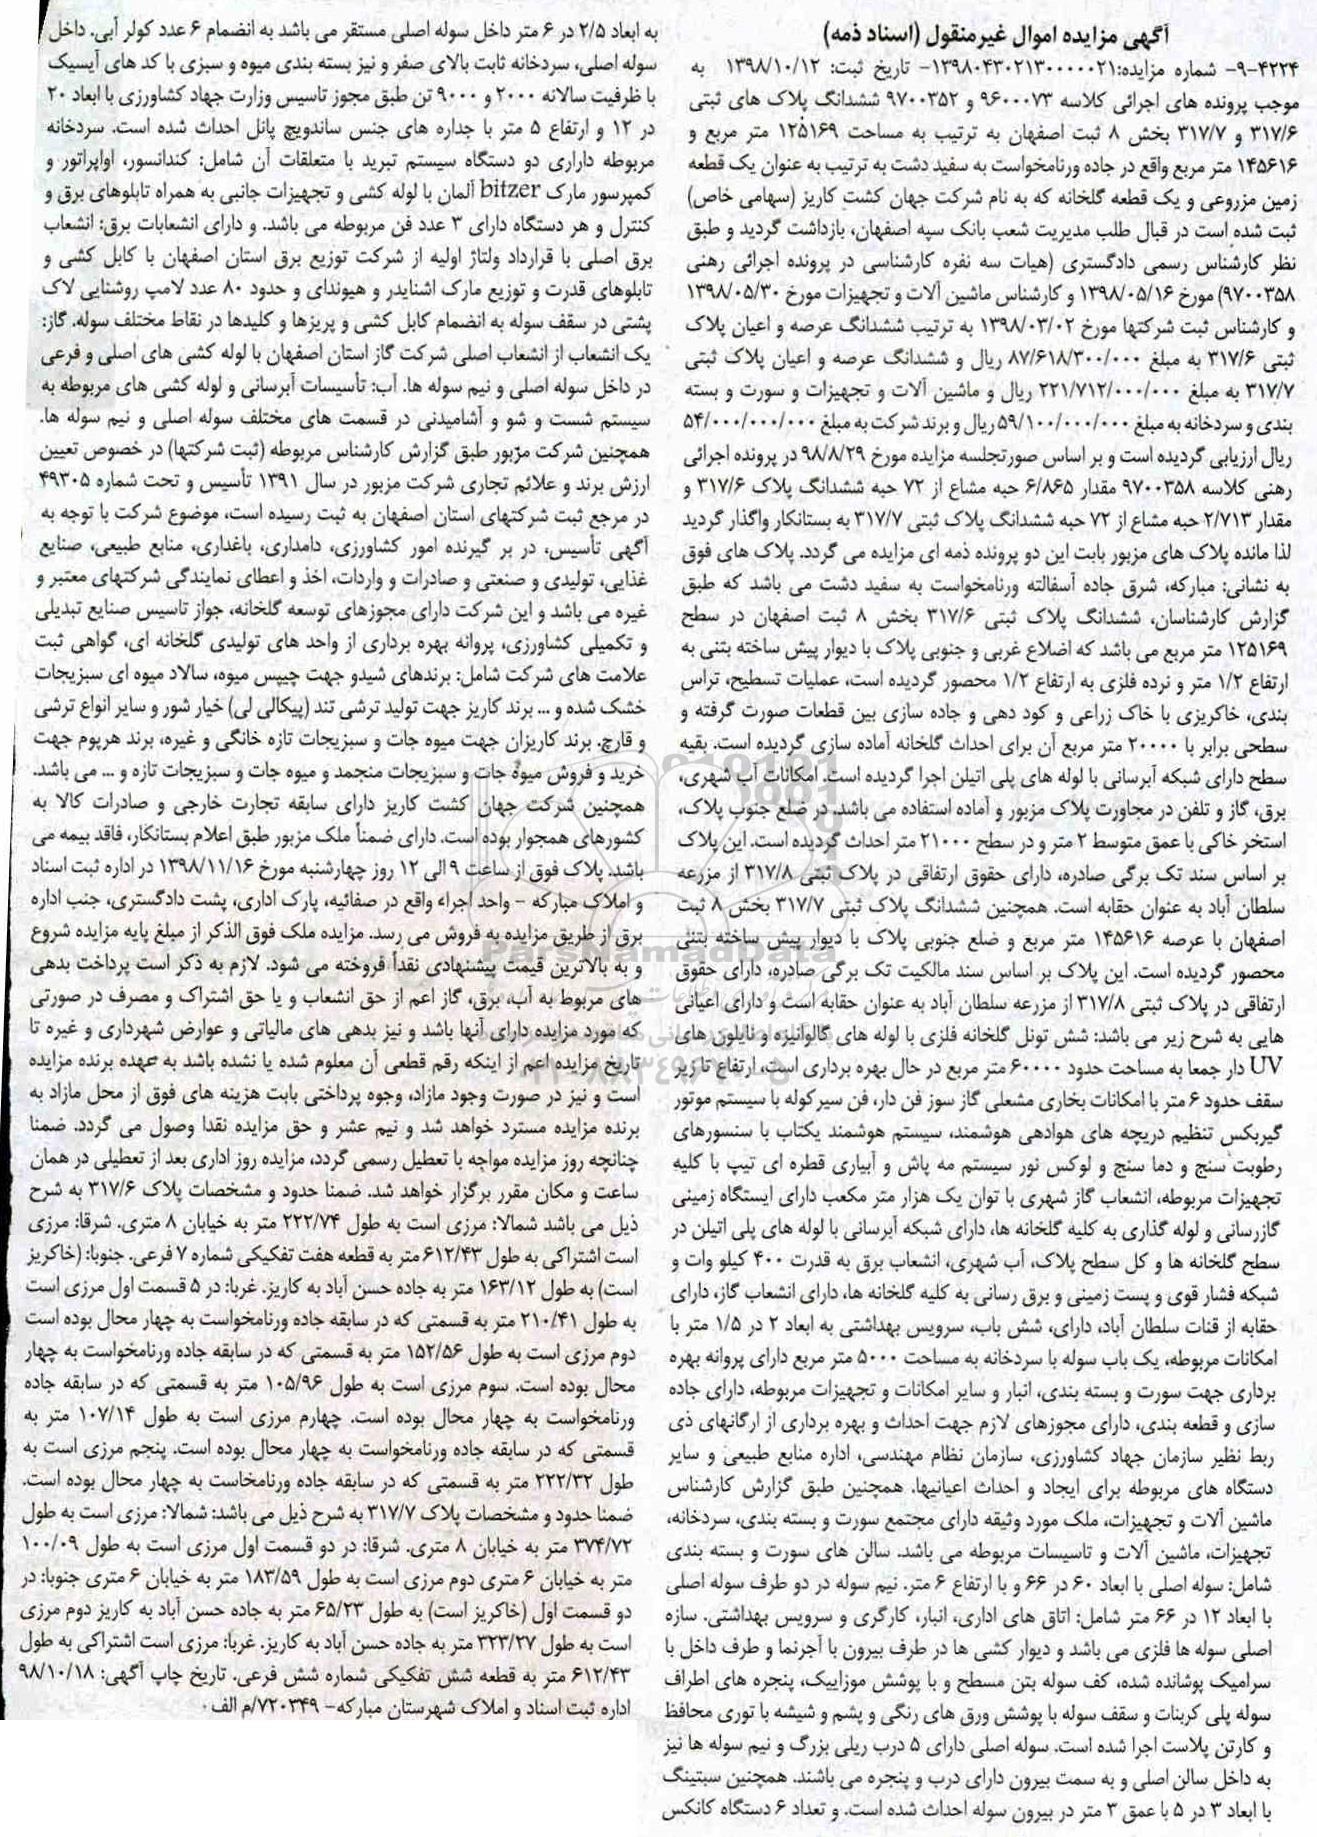 آگهی مزایده اموال غیرمنقول (اسناد ذمه)
۹-۴۲۲۴- شماره مزایده: ۱۳۹۸۰۴۳۰۲۱۳۰۰۰۰۰۲۱- تاریخ ثبت: ۱۳۹۸/۱۰/۱۲ به
موجب پرونده های اجرائی کلاسه ۹۶۰۰۰۷۳ و ۹۷۰۰۳۵۲ ششدانگ پلاک های ثبتی
۳۱۷/۶ و ۳۱۷/۷ بخش ۸ ثبت اصفهان به ترتیب به مساحت ۱۲۵۱۶۹ متر مربع و
۱۴۵۶۱۶ متر مربع واقع در جاده ورنامخواست به سفید دشت به ترتیب به عنوان یک قطعه
زمین مزروعی و یک قطعه گلخانه که به نام شرکت جهان کشت کاریز (سهامی خاص)
ثبت شده است در قبال طلب مدیریت شعب بانک سپه اصفهان، بازداشت گردید و طبق
نظر کارشناس رسمی دادگستری (هیات سه نفره کارشناسی در پرونده اجرائی رهنی
۹۷۰۰۳۵۸) مورخ ۱۳۹۸/۰۵/۱۶ و کارشناس ماشین آلات و تجهیزات مورخ ۱۳۹۸/۰۵/۳۰
و کارشناس ثبت شرکتها مورخ ۱۳۹۸/۰۳/۰۲ به ترتیب ششدانگ عرصه و اعیان پلاک
ثبتی ۳۱۷/۶ به مبلغ ۸۷/۶۱۸/۳۰۰/۰۰۰ ریال و ششدانگ عرصه و اعیان پلاک ثبتی
۳۱۷/۷ به مبلغ ۲۲۱/۷۱۲/۰۰۰/۰۰۰ ریال و ماشین آلات و تجهیزات و سورت و بسته
بندی و سردخانه به مبلغ ۵۹/۱۰۰/۰۰۰/۰۰۰ ریال و برند شرکت به مبلغ ۵۴/۰۰۰/۰۰۰/۰۰۰
ریال ارزیابی گردیده است و بر اساس صورتجلسه مزایده مورخ ۹۸/۸/۲۹ در پرونده اجرائی
رهنی کلاسه ۹۷۰۰۳۵۸ مقدار ۶/۸۶۵ حبه مشاع از ۷۲ حبه ششدانگ پلاک ۳۱۷/۶ و
مقدار ۲/۷۱۳ حبه مشاع از ۷۲ حبه ششدانگ پلاک ثبتی ۳۱۷/۷ به بستانکار واگذار گردید
لذا مانده پلاک های مزبور بابت این دو پرونده ذمه ای مزایده می گردد. پلاک های فوق
به نشانی: مبارکه، شرق جاده آسفالته ورنامخواست به سفید دشت می باشد که طبق
گزارش کارشناسان، ششدانگ پلاک ثبتی ۳۱۷/۶ بخش ۸ ثبت اصفهان در سطح
۱۲۵۱۶۹ متر مربع می باشد که اضلاع غربی و جنوبی پلاک با دیوار پیش ساخته بتنی به
ارتفاع ۱/۲ متر و نرده فلزی به ارتفاع ۱/۲ محصور گردیده است، عملیات تسطیح، تراس
بندی، خاکریزی با خاک زراعی و کود دهی و جاده سازی بین قطعات صورت گرفته و
سطحی برابر با ۲۰۰۰۰ متر مربع آن برای احداث گلخانه آماده سازی گردیده است. بقیه
سطح دارای شبکه آبرسانی با لوله های پلی اتیلن اجرا گردیده است. امکانات آب شهری،
برق، گاز و تلفن در مجاورت پلاک مزبور و آماده استفاده می باشد. در ضلع جنوب پلاک،
استخر خاکی با عمق متوسط ۲ متر و در سطح ۲۱۰۰۰ متر احداث گردیده است. این پلاک
بر اساس سند تک برگی صادره، دارای حقوق ارتفاقی در پلاک ثبتی ۳۱۷/۸ از مزرعه
سلطان آباد به عنوان حقابه است. همچنین ششدانگ پلاک ثبتی ۳۱۷/۷ بخش ۸ ثبت
اصفهان با عرصه ۱۴۵۶۱۶ متر مربع و ضلع جنوبی پلاک با دیوار پیش ساخته بتنی
محصور گردیده است. این پلاک بر اساس سند مالکیت تک برگی صادره، دارای حقوق
ارتفاقی در پلاک ثبتی ۳۱۷/۸ از مزرعه سلطان آباد به عنوان حقابه است و دارای اعیانی
هایی به شرح زیر می باشد: شش تونل گلخانه فلزی با لوله های گالوانیزه و نایلون های
UV دار جمعا به مساحت حدود ۶۰۰۰۰ متر مربع در حال بهره برداری است، ارتفاع تا زیر
سقف حدود ۶ متر با امکانات بخاری مشعلی گاز سوز فن دار، فن سیرکوله با سیستم موتور
گیربکس تنظیم دریچه های هوادهی هوشمند، سیستم هوشمند یکتاب با سنسورهای
رطوبت سنج و دما سنج و لوکس نور سیستم مه پاش و آبیاری قطره ای تیپ با کلیه
تجهیزات مربوطه، انشعاب گاز شهری با توان یک هزار متر مکعب دارای ایستگاه زمینی
گازرسانی و لوله گذاری به کلیه گلخانه ها، دارای شبکه آبرسانی با لوله های پلی اتیلن در
سطح گلخانه ها و کل سطح پلاک، آب شهری، انشعاب برق به قدرت ۴۰۰ کیلو وات و
شبکه فشار قوی و پست زمینی و برق رسانی به کلیه گلخانه ها، دارای انشعاب گاز، دارای
حقابه از قنات سلطان آباد، دارای، شش باب، سرویس بهداشتی به ابعاد ۲ در ۱/۵ متر با
امکانات مربوطه، یک باب سوله با سردخانه به مساحت ۵۰۰۰ متر مربع دارای پروانه بهره
برداری جهت سورت و بسته بندی، انبار و سایر امکانات و تجهیزات مربوطه، دارای جاده
سازی و قطعه بندی، دارای مجوزهای لازم جهت احداث و بهره برداری از ارگانهای ذی
ربط نظیر سازمان جهاد کشاورزی، سازمان نظام مهندسی، اداره منابع طبیعی و سایر
دستگاه های مربوطه برای ایجاد و احداث اعیانیها. همچنین طبق گزارش کارشناس
ماشین آلات و تجهیزات، ملک مورد وثیقه دارای مجتمع سورت و بسته بندی، سردخانه،
تجهیزات، ماشین آلات و تاسیسات مربوطه می باشد. سالن های سورت و بسته بندی
شامل: سوله اصلی با ابعاد ۶۰ در ۶۶ و با ارتفاع ۶ متر. نیم سوله در دو طرف سوله اصلی
با ابعاد ۱۲ در ۶۶ متر شامل: اتاق های اداری، انبار، کارگری و سرویس بهداشتی. سازه
اصلی سوله ها فلزی می باشد و دیوار کشی ها در طرف بیرون با آجرنما و طرف داخل با
سرامیک پوشانده شده، کف سوله بتن مسطح و با پوشش موزاییک، پنجره های اطراف
سوله پلی کربنات و سقف سوله با پوشش ورق های رنگی و پشم و شیشه با توری محافظ
و کارتن پلاست اجرا شده است. سوله اصلی دارای ۵ درب ریلی بزرگ و نیم سوله ها نیز
به داخل سالن اصلی و به سمت بیرون دارای درب و پنجره می باشند. همچنین سبتینگ
با ابعاد ۳ در ۵ با عمق ۳ متر در بیرون سوله احداث شده است. و تعداد ۶ دستگاه کانکس
به ابعاد ۲/۵ در ۶ متر داخل سوله اصلی مستقر می باشد به انضمام ۶ عدد کولر آبی. داخل
سوله اصلی، سردخانه ثابت بالای صفر و نیز بسته بندی میوه و سبزی با کد های آیسیک
با ظرفیت سالانه ۲۰۰۰ و ۹۰۰۰ تن طبق مجوز تاسیس وزارت جهاد کشاورزی با ابعاد ۲۰
در ۱۲ و ارتفاع ۵ متر با جداره های جنس ساندویچ پانل احداث شده است. سردخانه
مربوطه داراری دو دستگاه سیستم تبرید با متعلقات آن شامل: کندانسور، اواپراتور و
کمپرسور مارک bitzer آلمان با لوله کشی و تجهیزات جانبی به همراه تابلوهای برق و
کنترل و هر دستگاه دارای ۳ عدد فن مربوطه می باشد. و دارای انشعابات برق: انشعاب
برق اصلی با قرارداد ولتاژ اولیه از شرکت توزیع برق استان اصفهان با کابل کشی و
تابلوهای قدرت و توزیع مارک اشنایدر و هیوندای و حدود ۸۰ عدد لامپ روشنایی لاک
پشتی در سقف سوله به انضمام کابل کشی و پریزها و کلیدها در نقاط مختلف سوله. گاز:
یک انشعاب از انشعاب اصلی شرکت گاز استان اصفهان با لوله کشی های اصلی و فرعی
در داخل سوله اصلی و نیم سوله ها. آب: تأسیسات آبرسانی و لوله کشی های مربوطه به
سیستم شست و شو و آشامیدنی در قسمت های مختلف سوله اصلی و نیم سوله ها.
همچنین شرکت مزبور طبق گزارش کارشناس مربوطه (ثبت شرکتها) در خصوص تعیین
ارزش برند و علائم تجاری شرکت مزبور در سال ۱۳۹۱ تأسیس و تحت شماره ۴۹۳۰۵
در مرجع ثبت شرکتهای استان اصفهان به ثبت رسیده است، موضوع شرکت با توجه به
آگهی تأسیس، در بر گیرنده امور کشاورزی، دامداری، باغداری، منابع طبیعی، صنایع
غذایی، تولیدی و صنعتی و صادرات و واردات، اخذ و اعطای نمایندگی شرکتهای معتبر و
غیره می باشد و این شرکت دارای مجوزهای توسعه گلخانه، جواز تاسیس صنایع تبدیلی
و تکمیلی کشاورزی، پروانه بهره برداری از واحد های تولیدی گلخانه ای، گواهی ثبت
علامت های شرکت شامل: برندهای شیدو جهت چیپس میوه، سالاد میوه ای سبزیجات
خشک شده و ... برند کاریز جهت تولید ترشی تند (پیکالی لی) خیار شور و سایر انواع ترشی
و قارچ. برند کاریزان جهت میوه جات و سبزیجات تازه خانگی و غیره، برند هرپوم جهت
خرید و فروش میوه جات و سبزیجات منجمد و میوه جات و سبزیجات تازه و ... می باشد.
همچنین شرکت جهان کشت کاریز دارای سابقه تجارت خارجی و صادرات کالا به
کشورهای همجوار بوده است. دارای ضمناً ملک مزبور طبق اعلام بستانکار، فاقد بیمه می
باشد. پلاک فوق از ساعت ۹ الی ۱۲ روز چهارشنبه مورخ ۱۳۹۸/۱۱/۱۶ در اداره ثبت اسناد
و املاک مبارکه - واحد اجراء واقع در صفائیه، پارک اداری، پشت دادگستری، جنب اداره
برق از طریق مزایده به فروش می رسد. مزایده ملک فوق الذکر از مبلغ پایه مزایده شروع
و به بالاترین قیمت پیشنهادی نقداً فروخته می شود. لازم به ذکر است پرداخت بدهی
های مربوط به آب، برق، گاز اعم از حق انشعاب و یا حق اشتراک و مصرف در صورتی
که مورد مزایده دارای آنها باشد و نیز بدهی های مالیاتی و عوارض شهرداری و غیره تا
تاریخ مزایده اعم از اینکه رقم قطعی آن معلوم شده یا نشده باشد به عهده برنده مزایده
است و نیز در صورت وجود مازاد، وجوه پرداختی بابت هزینه های فوق از محل مازاد به
برنده مزایده مسترد خواهد شد و نیم عشر و حق مزایده نقدا وصول می گردد. ضمنا
چنانچه روز مزایده مواجه با تعطیل رسمی گردد، مزایده روز اداری بعد از تعطیلی در همان
ساعت و مکان مقرر برگزار خواهد شد. ضمنا حدود و مشخصات پلاک ۳۱۷/۶ به شرح
ذیل می باشد شمالا: مرزی است به طول ۲۲۲/۷۴ متر به خیابان ۸ متری. شرقا: مرزی
است اشتراکی به طول ۶۱۲/۴۳ متر به قطعه هفت تفکیکی شماره ۷ فرعی. جنوبا: (خاکریز
است) به طول ۱۶۳/۱۲ متر به جاده حسن آباد به کاریز. غربا: در ۵ قسمت اول مرزی است
به طول ۲۱۰/۴۱ متر به قسمتی که در سابقه جاده ورنامخواست به چهار محال بوده است
دوم مرزی است به طول ۱۵۲/۵۶ متر به قسمتی که در سابقه جاده ورنامخواست به چهار
محال بوده است. سوم مرزی است به طول ۱۰۵/۹۶ متر به قسمتی که در سابقه جاده
ورنامخواست به چهار محال بوده است. چهارم مرزی است به طول ۱۰۷/۱۴ متر به
قسمتی که در سابقه جاده ورنامخواست به چهار محال بوده است. پنجم مرزی است به
طول ۲۲۲/۳۲ متر به قسمتی که در سابقه جاده ورنامخاست به چهار محال بوده است.
ضمنا حدود و مشخصات پلاک ۳۱۷/۷ به شرح ذیل می باشد: شمالا: مرزی است به طول
۳۷۴/۷۲ متر به خیابان ۸ متری. شرقا: در دو قسمت اول مرزی است به طول ۱۰۰/۰۹
متر به خیابان ۶ متری دوم مرزی است به طول ۱۸۳/۵۹ متر به خیابان ۶ متری جنوبا: در
دو قسمت اول (خاکریز است) به طول ۶۵/۲۳ متر به جاده حسن آباد به کاریز دوم مرزی
است به طول ۳۲۳/۲۷ متر به جاده حسن آباد به کاریز. غربا: مرزی است اشتراکی به طول
۶۱۲/۴۳ متر به قطعه شش تفکیکی شماره شش فرعی. تاریخ چاپ آگهی: ۹۸/۱۰/۱۸
اداره ثبت اسناد و املاک شهرستان مبارکه- ۷۲۰۳۴۹/م الف.
ParsNamadData